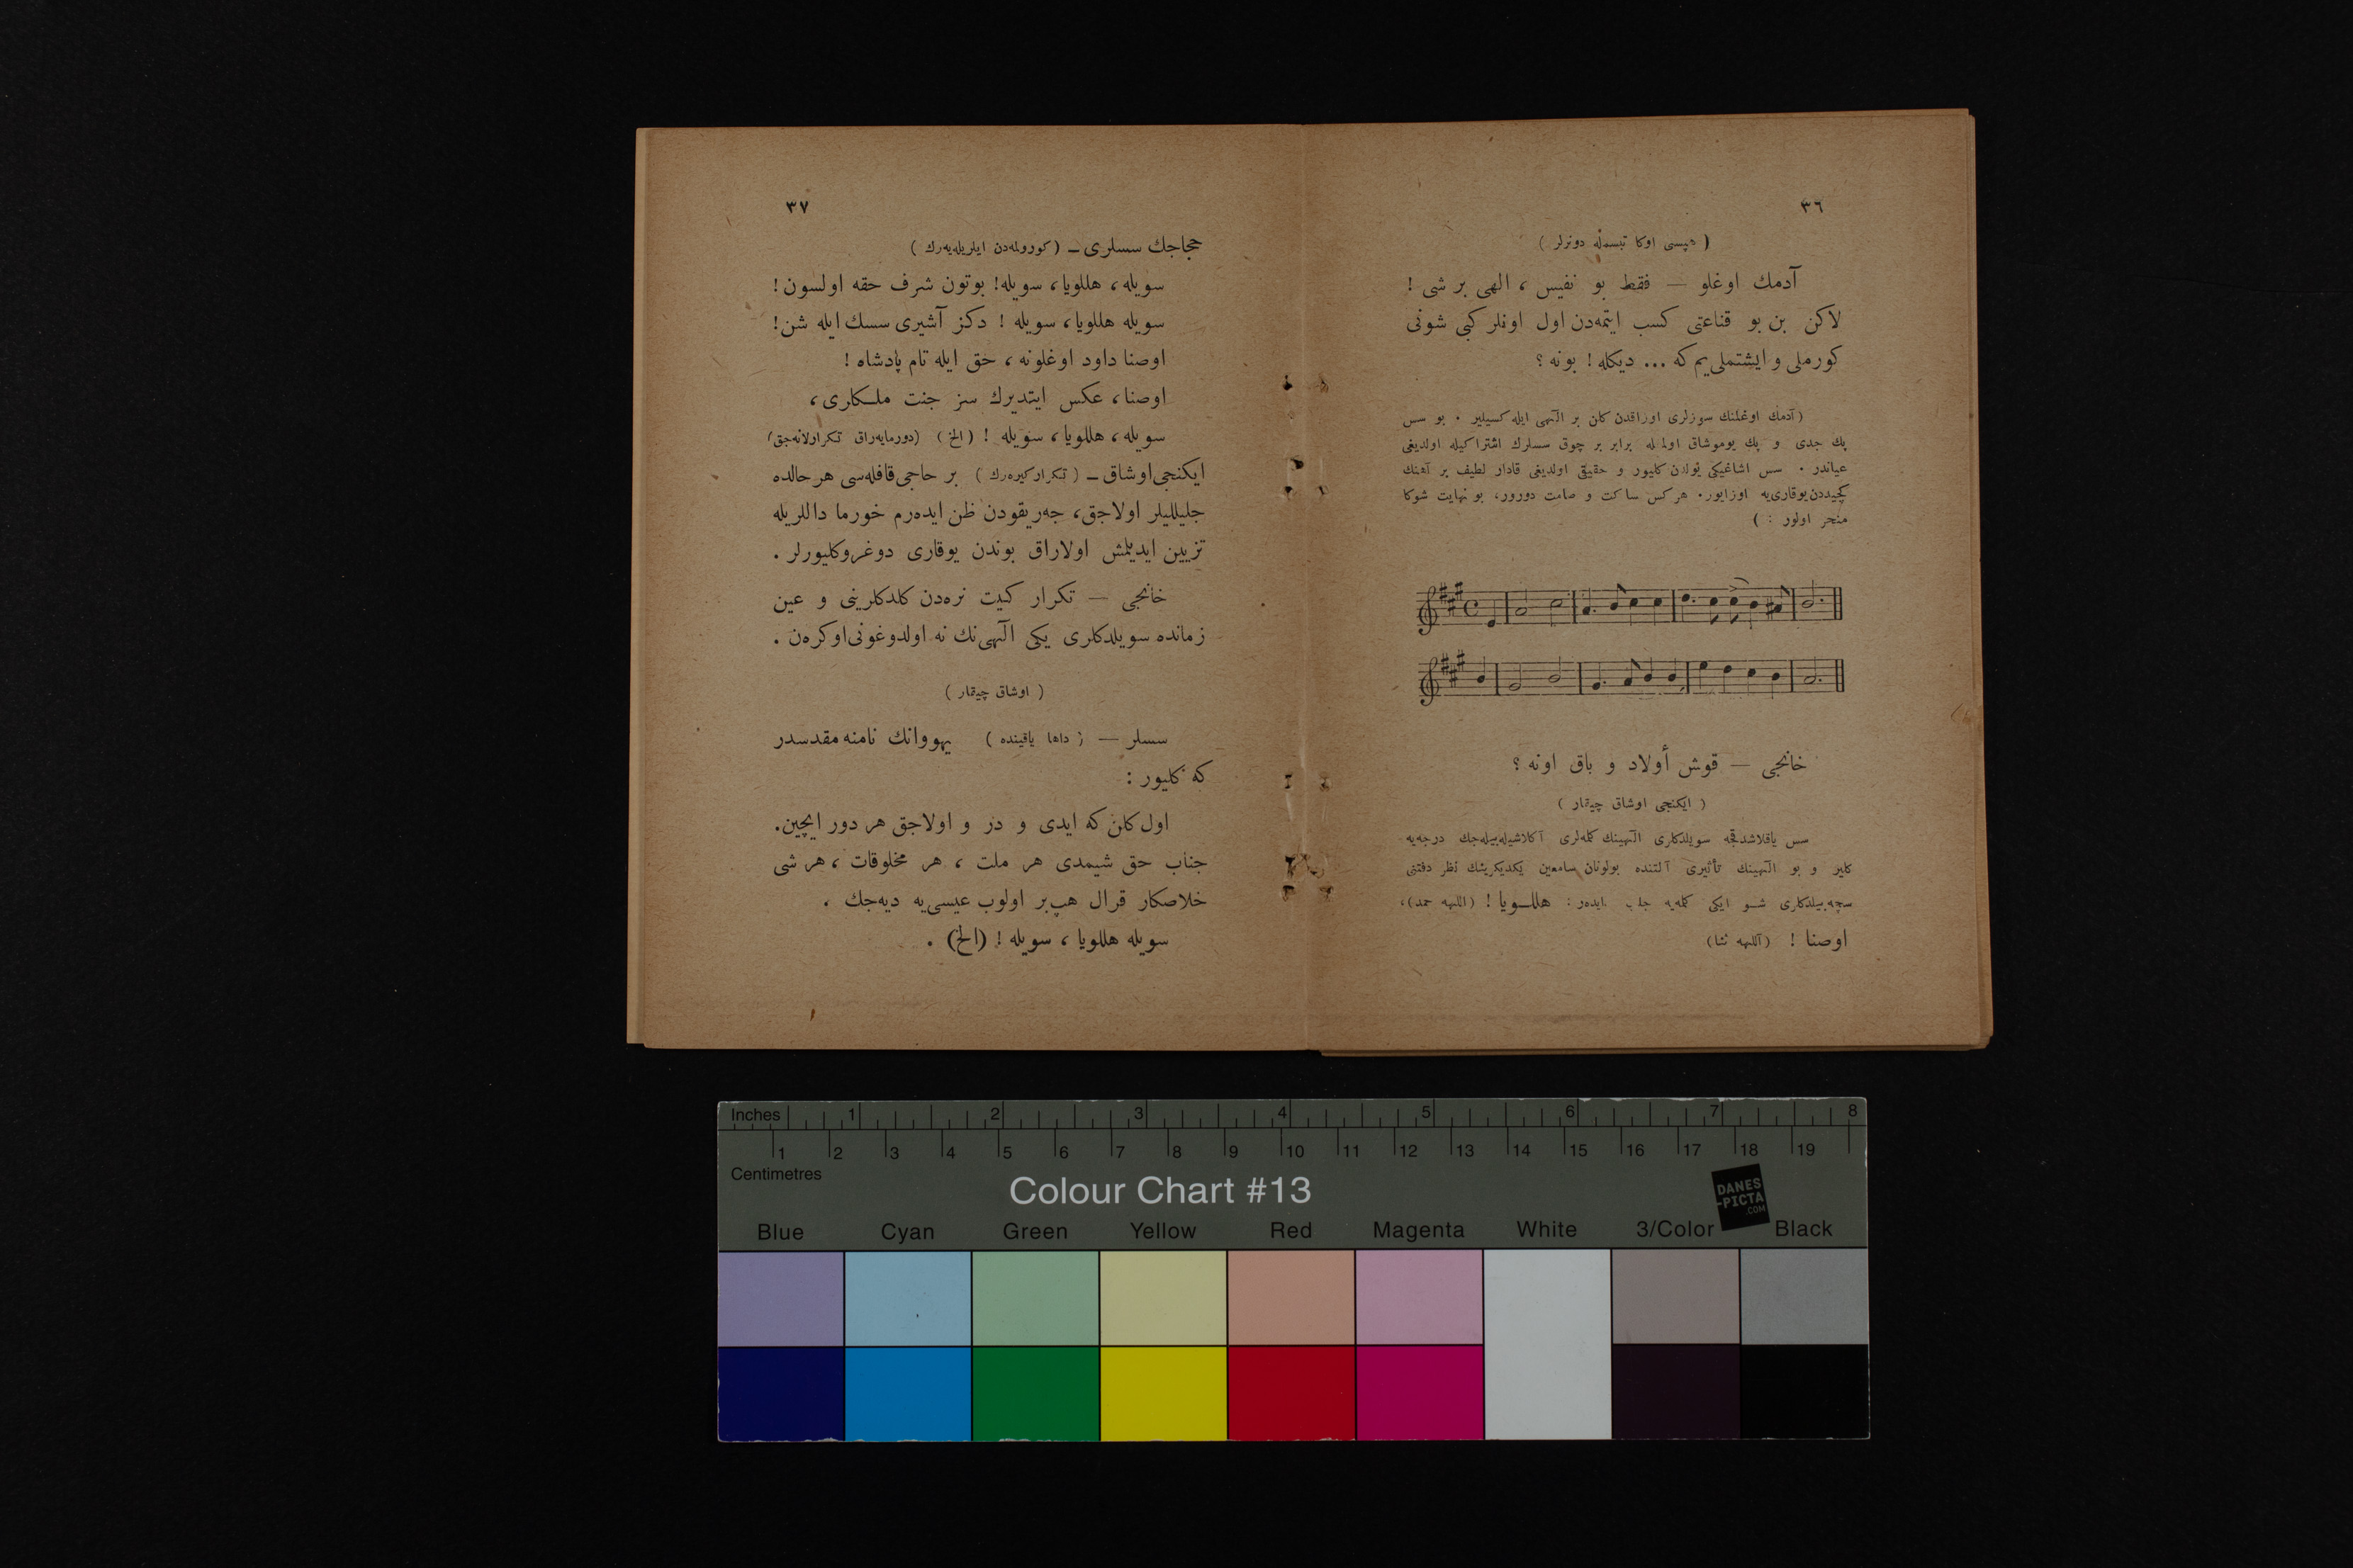 ٣٦
( هپسى اوكا تبسمله دونرلر )
آدمك اوغلو — فقط بو نفيس ، الهى بر شى !
لاكن بن بو قناعتى كسب ايتمه‌دن اول اونلر كبى شونى
كورملى و ايشتملى‌يم كه ... ديكله ! بو نه ؟
( آدمك اوغلنك سوزلرى اوزاقدن كلن بر الٓهى ايله كسيلير . بو سس
پك جدى و پك يوموشاق اولمالله برابر بر چوق سسلرك اشتراكيله اولديغى
عياندر . سس اشاغيكى يولدن كليور و حقيقى اولديغى قادار لطيف بر آهنك
كچيددن يوقارى‌يه اوزايور . هركس ساكت و صامت دورور، بو نهايت شوكا
منجر اولور : )
خانجى — قوش أولاد و باق او نه ؟
( ايكنجى اوشاق چيقار )
سس ياقلاشدقجه سويلدكلرى الٓهينك كلمه‌لرى آكلاشيله‌بيله‌جك درجه‌يه
كلير و بو الٓهينك تأثيرى آلتنده بولونان سامعين يكديكرينك نظر دقتنى
سچه‌بيلدكلرى شو ايكى كلمه‌يه جلب ايدەر : هللويا ! (اللهه حمد)،
اوصنا ! (آللهه ثنا)
٣٧
حجاجك سسلرى — ( كورولمه‌دن ايلريله‌يه‌رك )
سويله ، هللويا ، سويله ! بوتون شرف حقه اولسون !
سويله هللويا ، سويله ! دكز آشيرى سسك ايله شن !
اوصنا داود اوغلونه ، حق ايله تام پادشاه !
اوصنا ، عكس ايتديرك سز جنت ملكلرى ،
سويله ، هللويا ، سويله ! (الخ) (دورمايه‌راق تكرارلانه‌جق)
ايكنجى اوشاق — ( تكرار كيره‌رك ) بر حاجى قافله‌سى هر حالده
جليلليلر اولاجق ، جه‌ريقودن ظن ايدەرم خورما داللريله
تزيين ايديلمش اولاراق بوندن يوقارى دوغرو كليورلر .
خانجى — تكرار كيت نره‌دن كلدكلرينى و عين
زمانده سويلدكلرى يكى الٓهى‌نك نه اولدوغونى اوكره‌ن .
( اوشاق چيقار )
سسلر — ( داها ياقينده ) يهووانك نامنه مقدسدر
كه كليور :
اول كلن كه ايدى و در و اولاجق هر دور ايچين .
جناب حق شيمدى هر ملت ، هر مخلوقات ، هر شى
خلاصكار قرال هپ بر اولوب عيسى‌يه ديه‌جك .
سويله هللويا ، سويله ! (الخ) .
Inches 1 2 3 4 5 6 7 8
1 2 3 4 5 6 7 8 9 10 11 12 13 14 15 16 17 18 19
Centimetres
Colour Chart #13
DANES
-PICTA
.COM
Blue Cyan Green Yellow Red Magenta White 3/Color Black